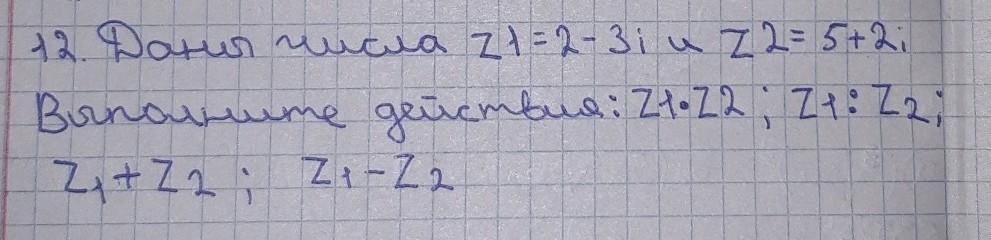 12. Даны числа Z1=2-3i и Z2=5+2i
Выполните действия: Z1•Z2; Z1:Z2;
Z1+Z2; Z1-Z2